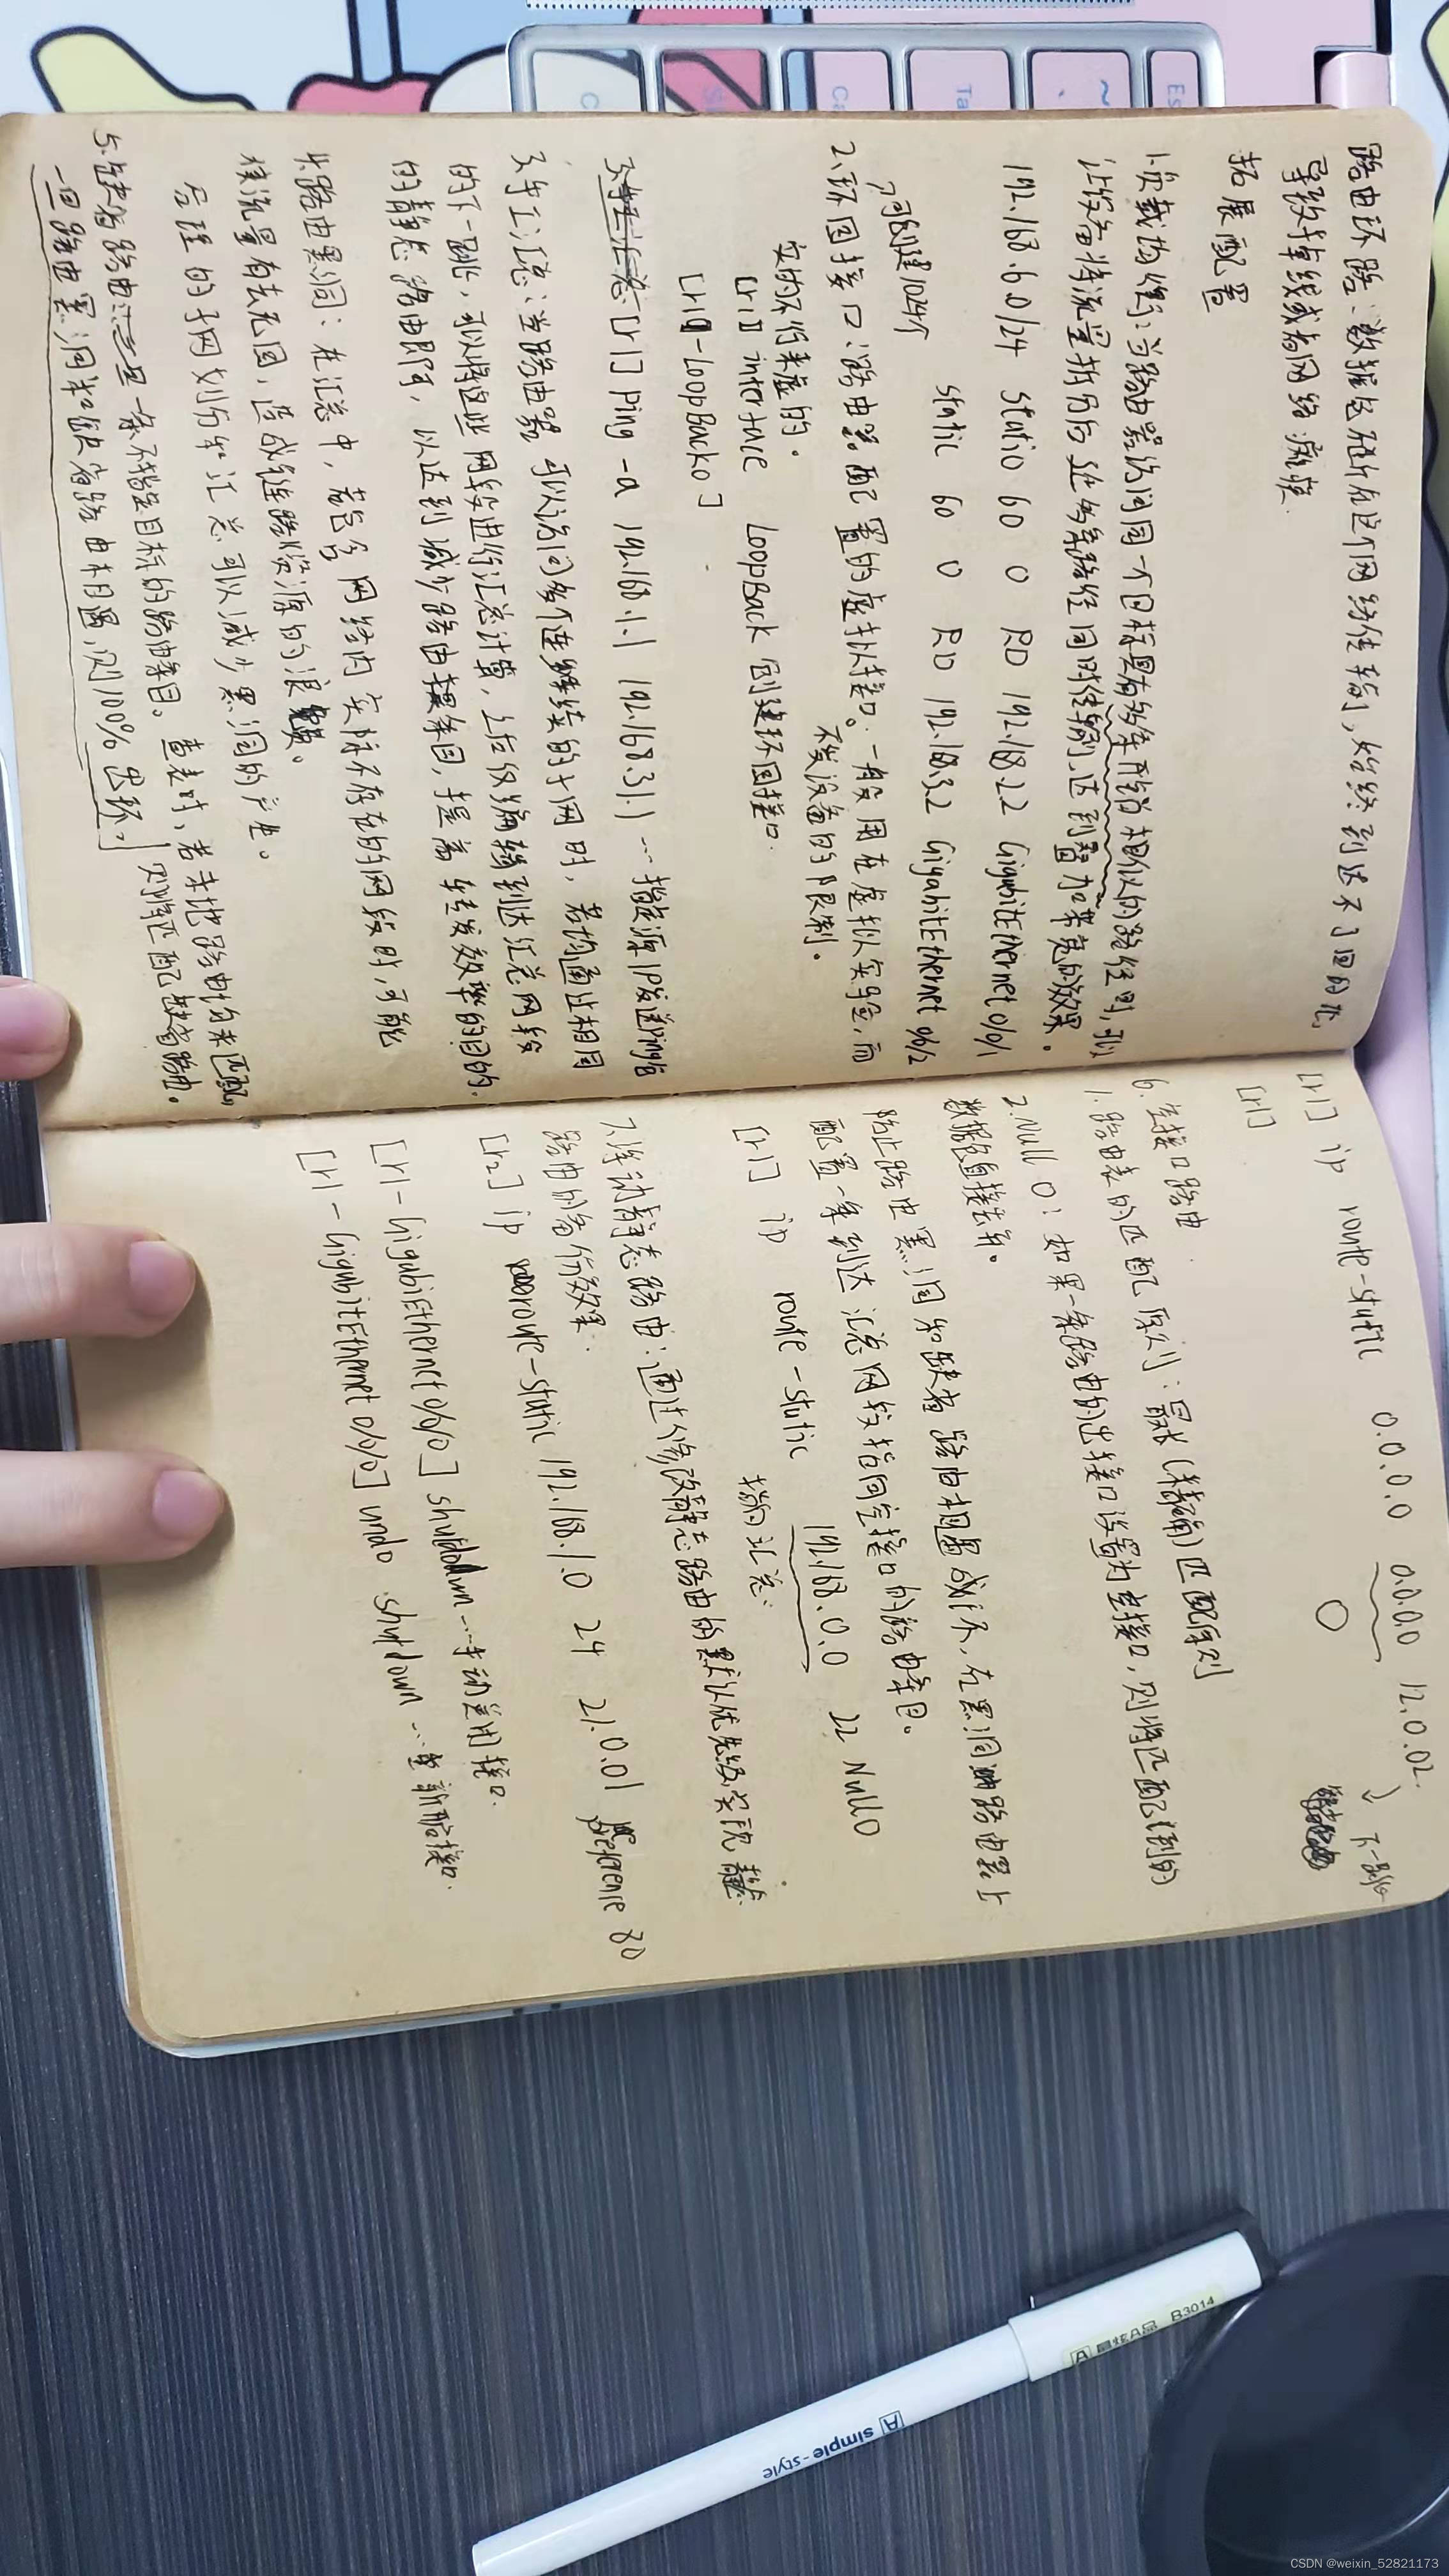 路由环路：数据包在这个网络传输，始终到达不了目的地，
导致掉线或者网络瘫痪.
拓展配置
1.负载均衡：当路由器访问同一个目标具有多条开销相似的路径时，可以
让设备将流量拆分后延多条路径同时传输，达到叠加带宽的效果。
192.168.6.0/24 static 60 0 RD 192.168.2.2 GigabitEthernet 0/0/1
static 60 0 RD 192.168.3.2 GigabitEthernet 0/0/2
可创建1024个
2.环回接口：路由器配置的虚拟接口。一般用在虚拟实验，而
不受设备的限制.
实的不行来虚的.
[r1] interface LoopBack 创建环回接口.
[r1-LoopBack0]
[r1] ping -a 192.168.1.1 192.168.31.1 … 指定源IP发送ping包
3.手工汇总：当路由器可以访问多个连续的子网时，若均通过相同
的下一跳，可以将这些网段进行汇总计算，之后仅编辑到达汇总网段
的静态路由即可，以达到减少路由条目，提高转发效率的目的.
4.路由黑洞：在汇总中，若包含网络内实际不存在的网段时，可能
使流量有去无回，造成链路资源的浪费。
合理的子网划分和汇总可以减少黑洞的产生。
5.缺省路由：是一条不指定目标的路由条目。查表时，若本地路由均未匹配，
则将匹配缺省路由.
一旦路由黑洞和缺省路由相遇，则100%出环.
[r1] ip route-static 0.0.0.0 0.0.0.0 12.0.0.2
0
下一跳
[r1]
6.空接口路由.
1.路由表的匹配原则：最长(精确)匹配原则
2.Null 0：如果一条路由的出接口设置为空接口，则将匹配到的
数据包直接丢弃。
防止路由黑洞和缺省路由相遇成环，在黑洞路由器上
配置一条到达汇总网段指向空接口的路由条目。
[r1] ip route-static 192.168.0.0 22 Null0
汇总.
7.浮动静态路由：通过修改静态路由的默认优先级实现静态
路由的备份效果.
[r2] ip route-static 192.168.1.0 24 21.0.0.1 preference 80
[r1-GigabitEthernet0/0/0] shutdown … 手动关闭接口.
[r1-GigabitEthernet0/0/0] undo shutdown … 重新开启接口.
Es
~
、
Ta
Ca
C
A simple-style
A 晨炫A品 B3014
CSDN @weixin_52821173